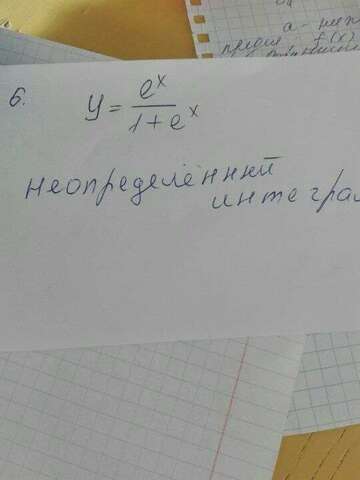 6. y = e^x / 1 + e^x
неопределённый
интеграл